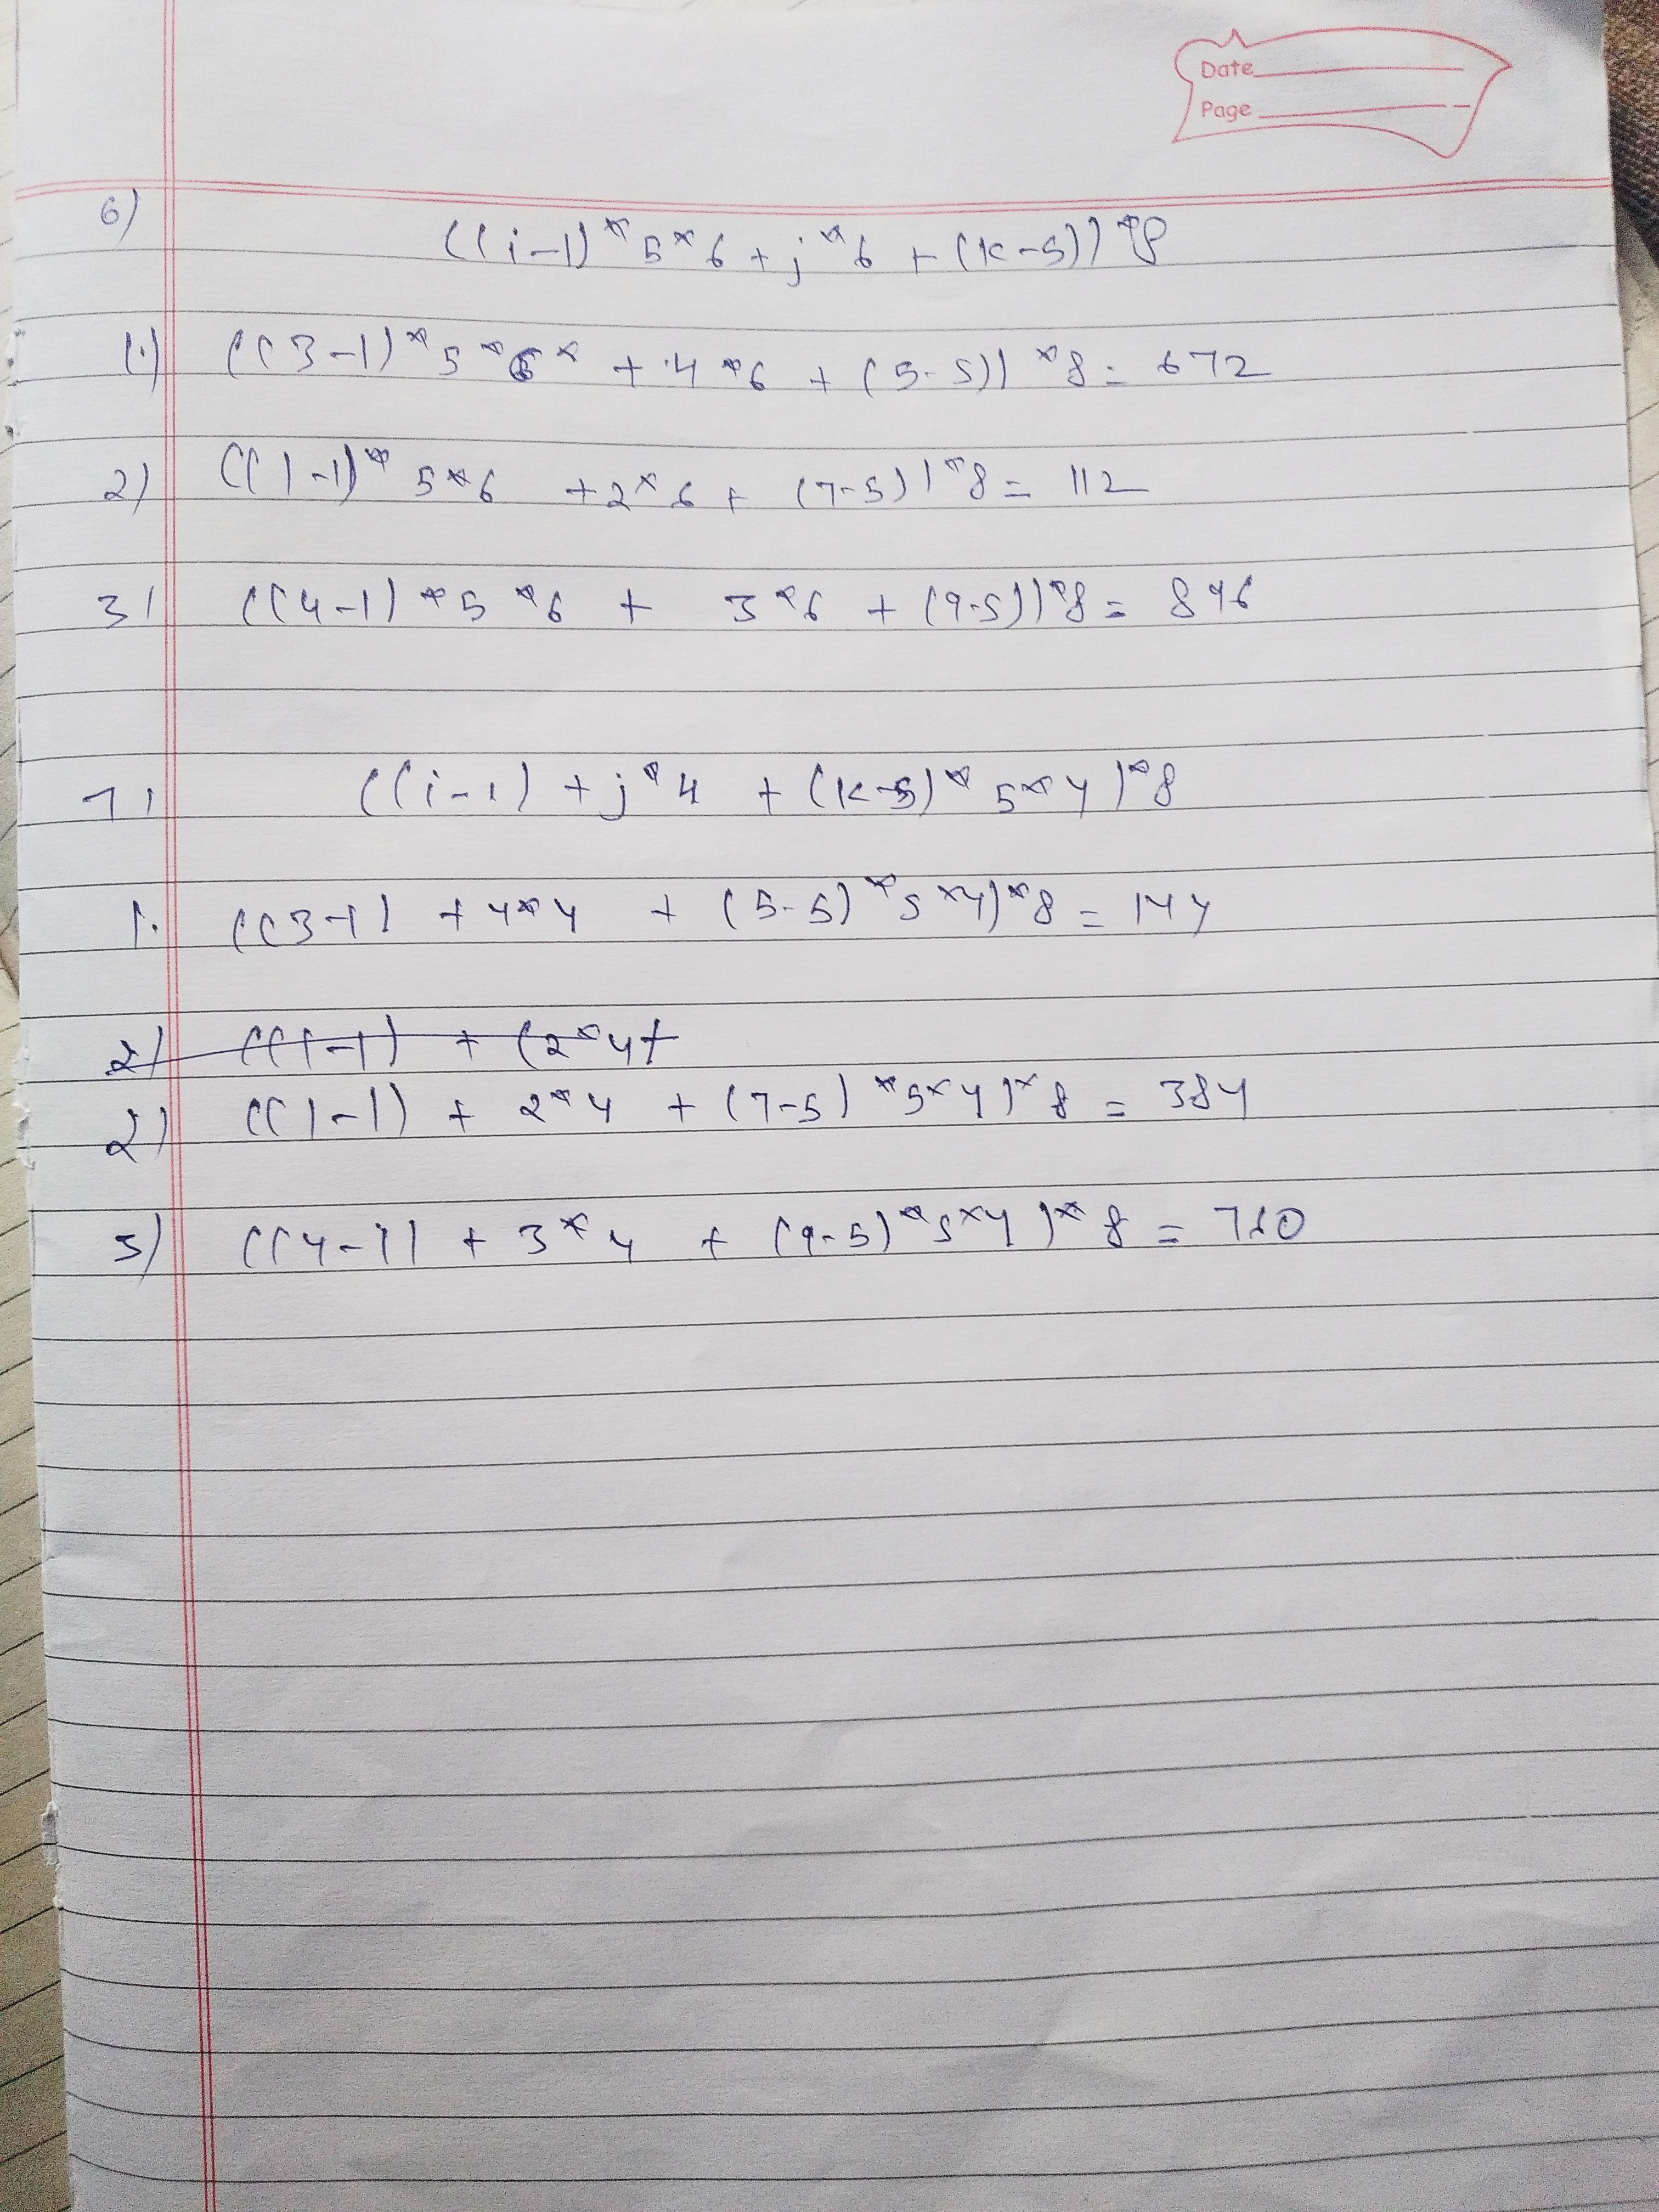 Date
Page
6) ((i-1)*5*6 + j*6 + (k-5))*8
1.) ((3-1)*5*6* + 4*6 + (5-5))*8 = 672
2) ((1-1)*5*6 + 2*6 + (7-5))*8 = 112
3) ((4-1)*5*6 + 3*6 + (9-5))*8 = 896
7) ((i-1) + j*4 + (k-5)*5*4)*8
1. ((3-1) + 4*4 + (5-5)*5*4)*8 = 144
2) ((1-1) + (2*4)
2) ((1-1) + 2*4 + (7-5)*5*4)*8 = 384
3) ((4-1) + 3*4 + (9-5)*5*4)*8 =